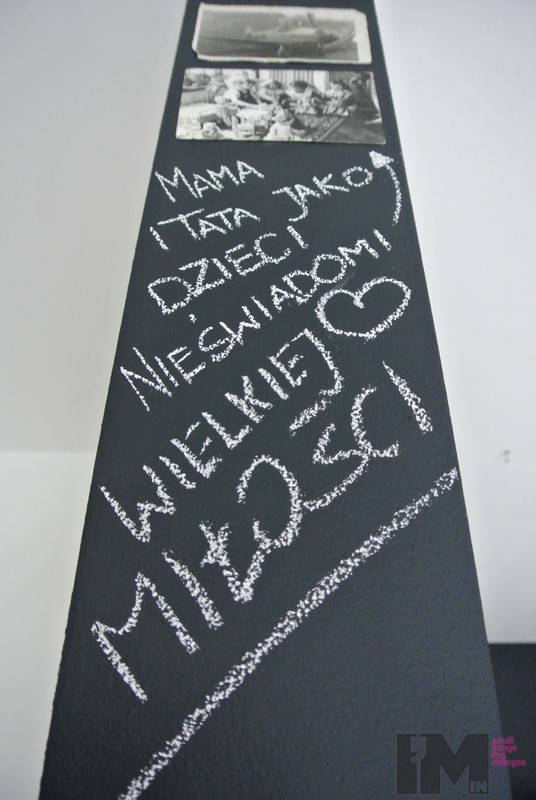 MAMA
I TATA JAKO
DZIECI
NIEŚWIADOMI
WIELKIEJ
MIŁOŚCI
IM
IN
small
things
big
changes